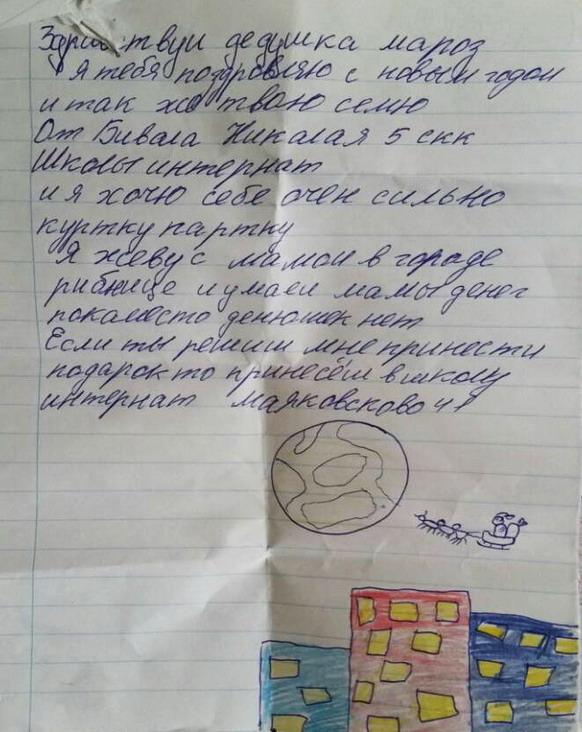 Здраствуи дедушка мароз
я тебя поздровляю с новым годом
и так жо тваю семю
От Бивала Николая 5 скк
Школы интернат
и я хочу себе очен сильно
куртку партку
Я жеву с мамои в городе
рибнице и умаеи мамы денег
покаместо денюшок нет
Если ты решиш мне принести
подарок то принесёш в школу
интернат маяковсково 41